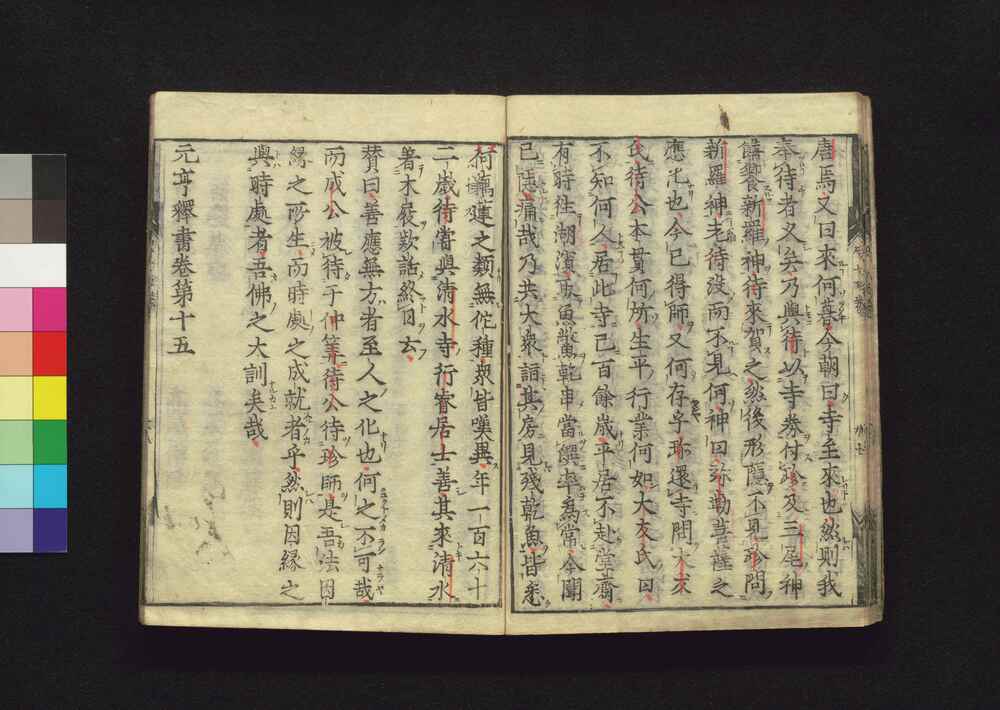 唐焉又曰來何暮今朝曰寺主來也然則我
奉待者久矣乃與待以寺券付珍及三尾神
饗新羅神待來賀之然後形隱不見珍問
新羅神老待沒而不見何神曰弥勒菩薩之
應化也今已得師又何存乎珍還寺問大友
氏待公本貫何所生平行業何如大友氏曰
不知何人居此寺已百餘歲平居不赴堂齋
有時徃湖濱取魚鱉乾串當饌率爲常今聞
已隱痛哉乃共大衆詣其房見殘乾魚皆悉
荷藕蓮之類無佗種衆皆嘆異年一百六十
二歲待嘗與清水寺行睿居士善其來清水
著木屐歎話終日云
賛曰善應無方者至人之化也何之不可哉
而成公被待于仲筭待公待珍師是吾法因
緣之所生而時處之成就者乎然則因緣之
與時處者吾佛之大訓矣哉
元亨釋書卷第十五